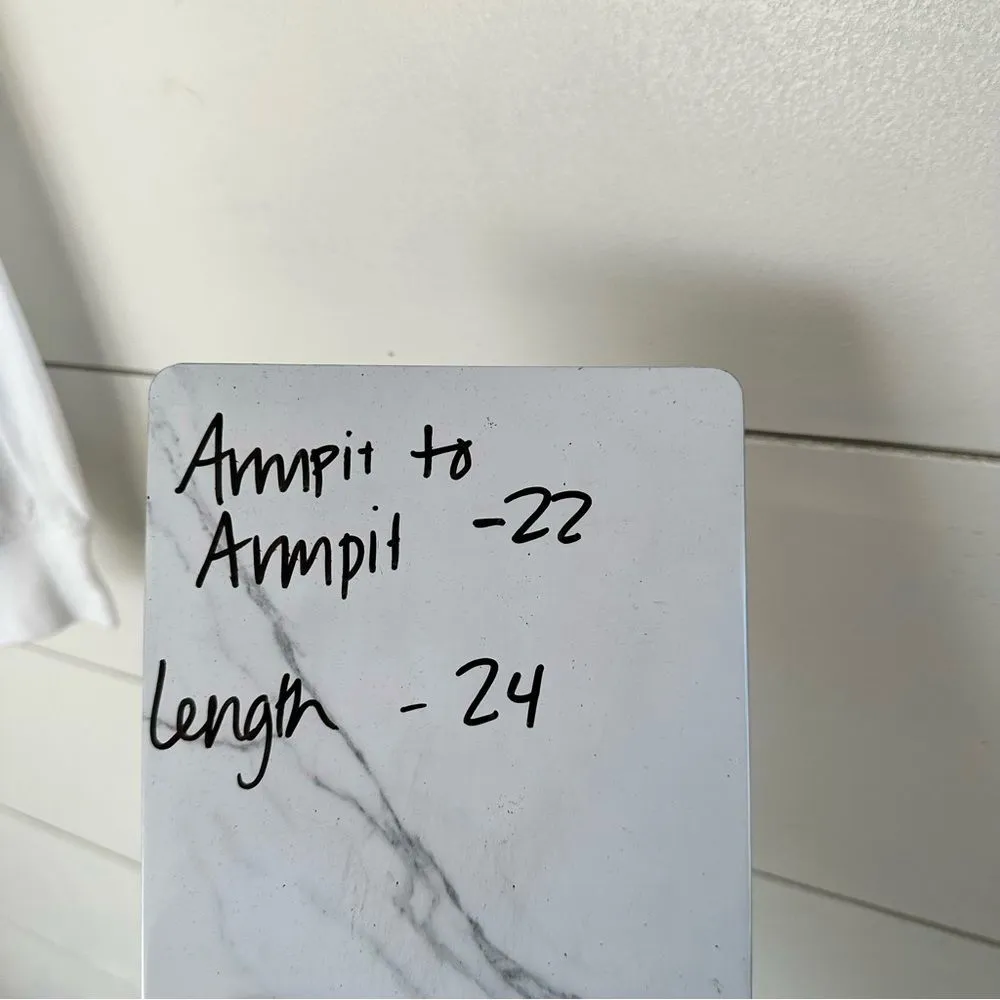 Armpit to
Armpit -22
Length - 24